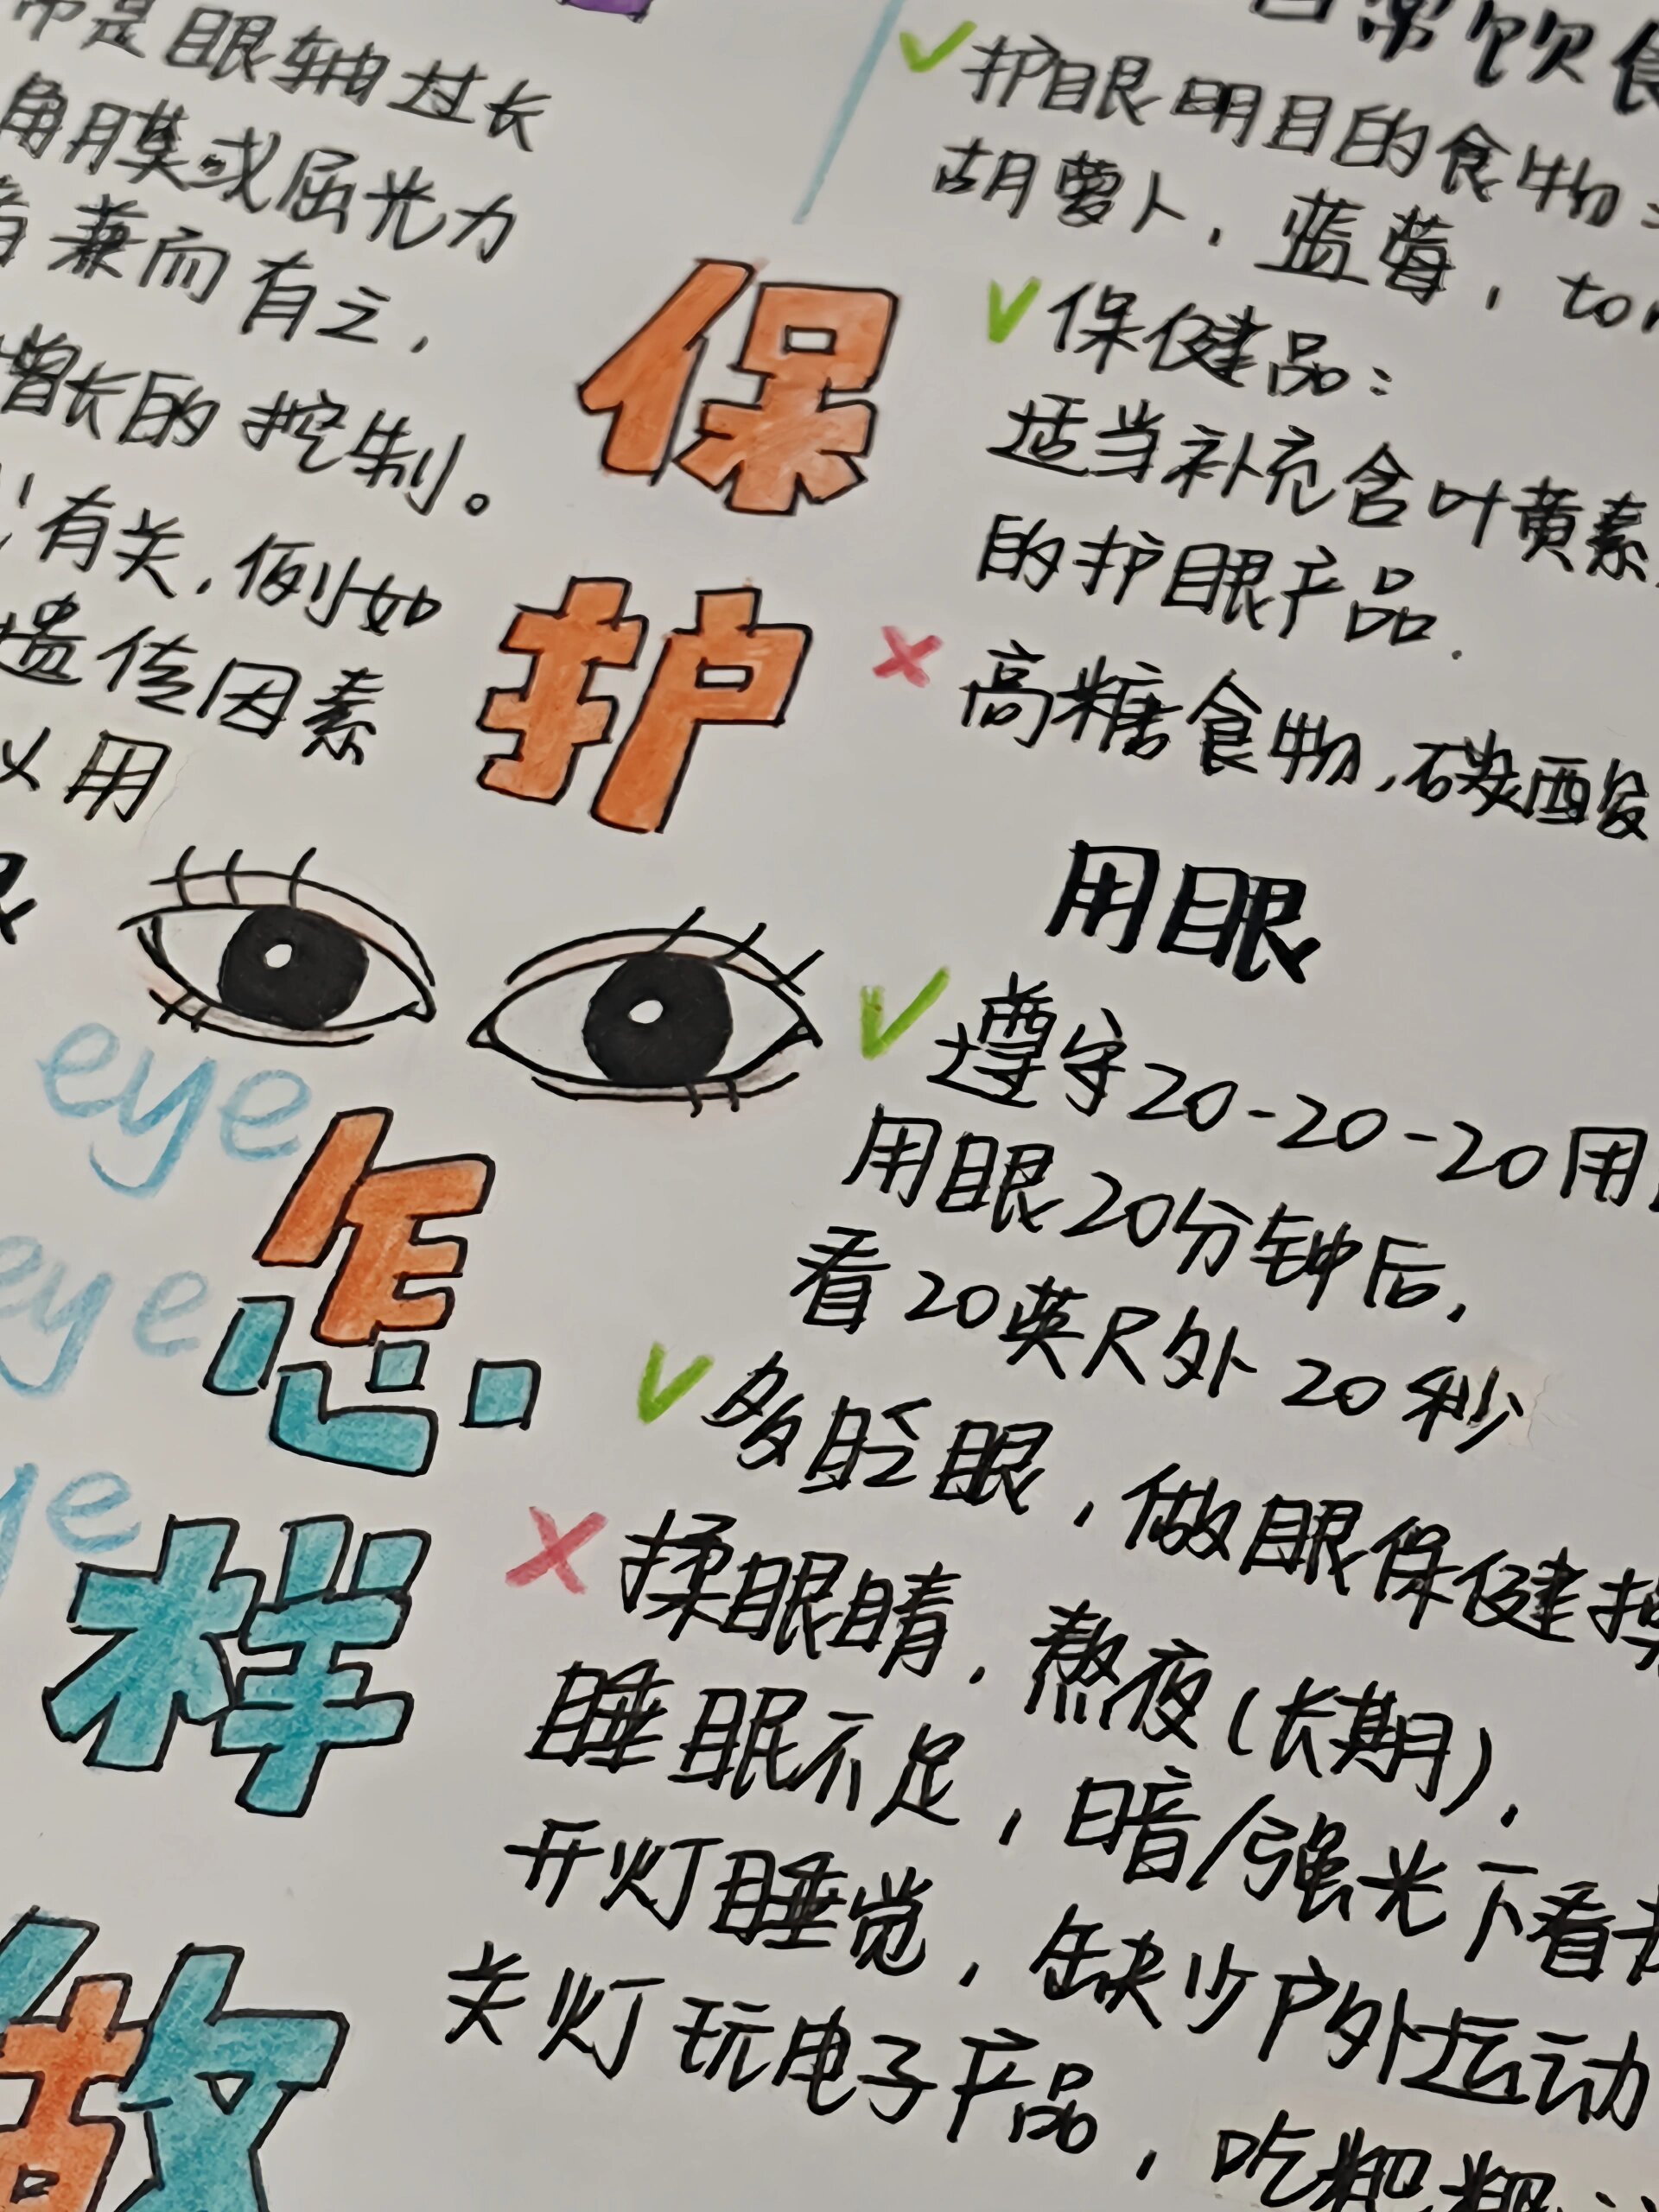 是眼轴过长
角膜或屈光力
兼而有之，
增长的控制。
有关，例如
遗传因素
以用
保
护
eye
eye
ye
怎
样
做
日常饮食
护眼明目的食物：
胡萝卜，蓝莓，to
保健品：
适当补充含叶黄素
的护眼产品.
高糖食物，碳酸
用眼
遵守20-20-20用
用眼20分钟后，
看20英尺外20秒
多眨眼，做眼保健操
揉眼睛，熬夜(长期)，
睡眠不足，暗/强光下看
开灯睡觉，缺少户外运动
关灯玩电子产品，吃粑粑